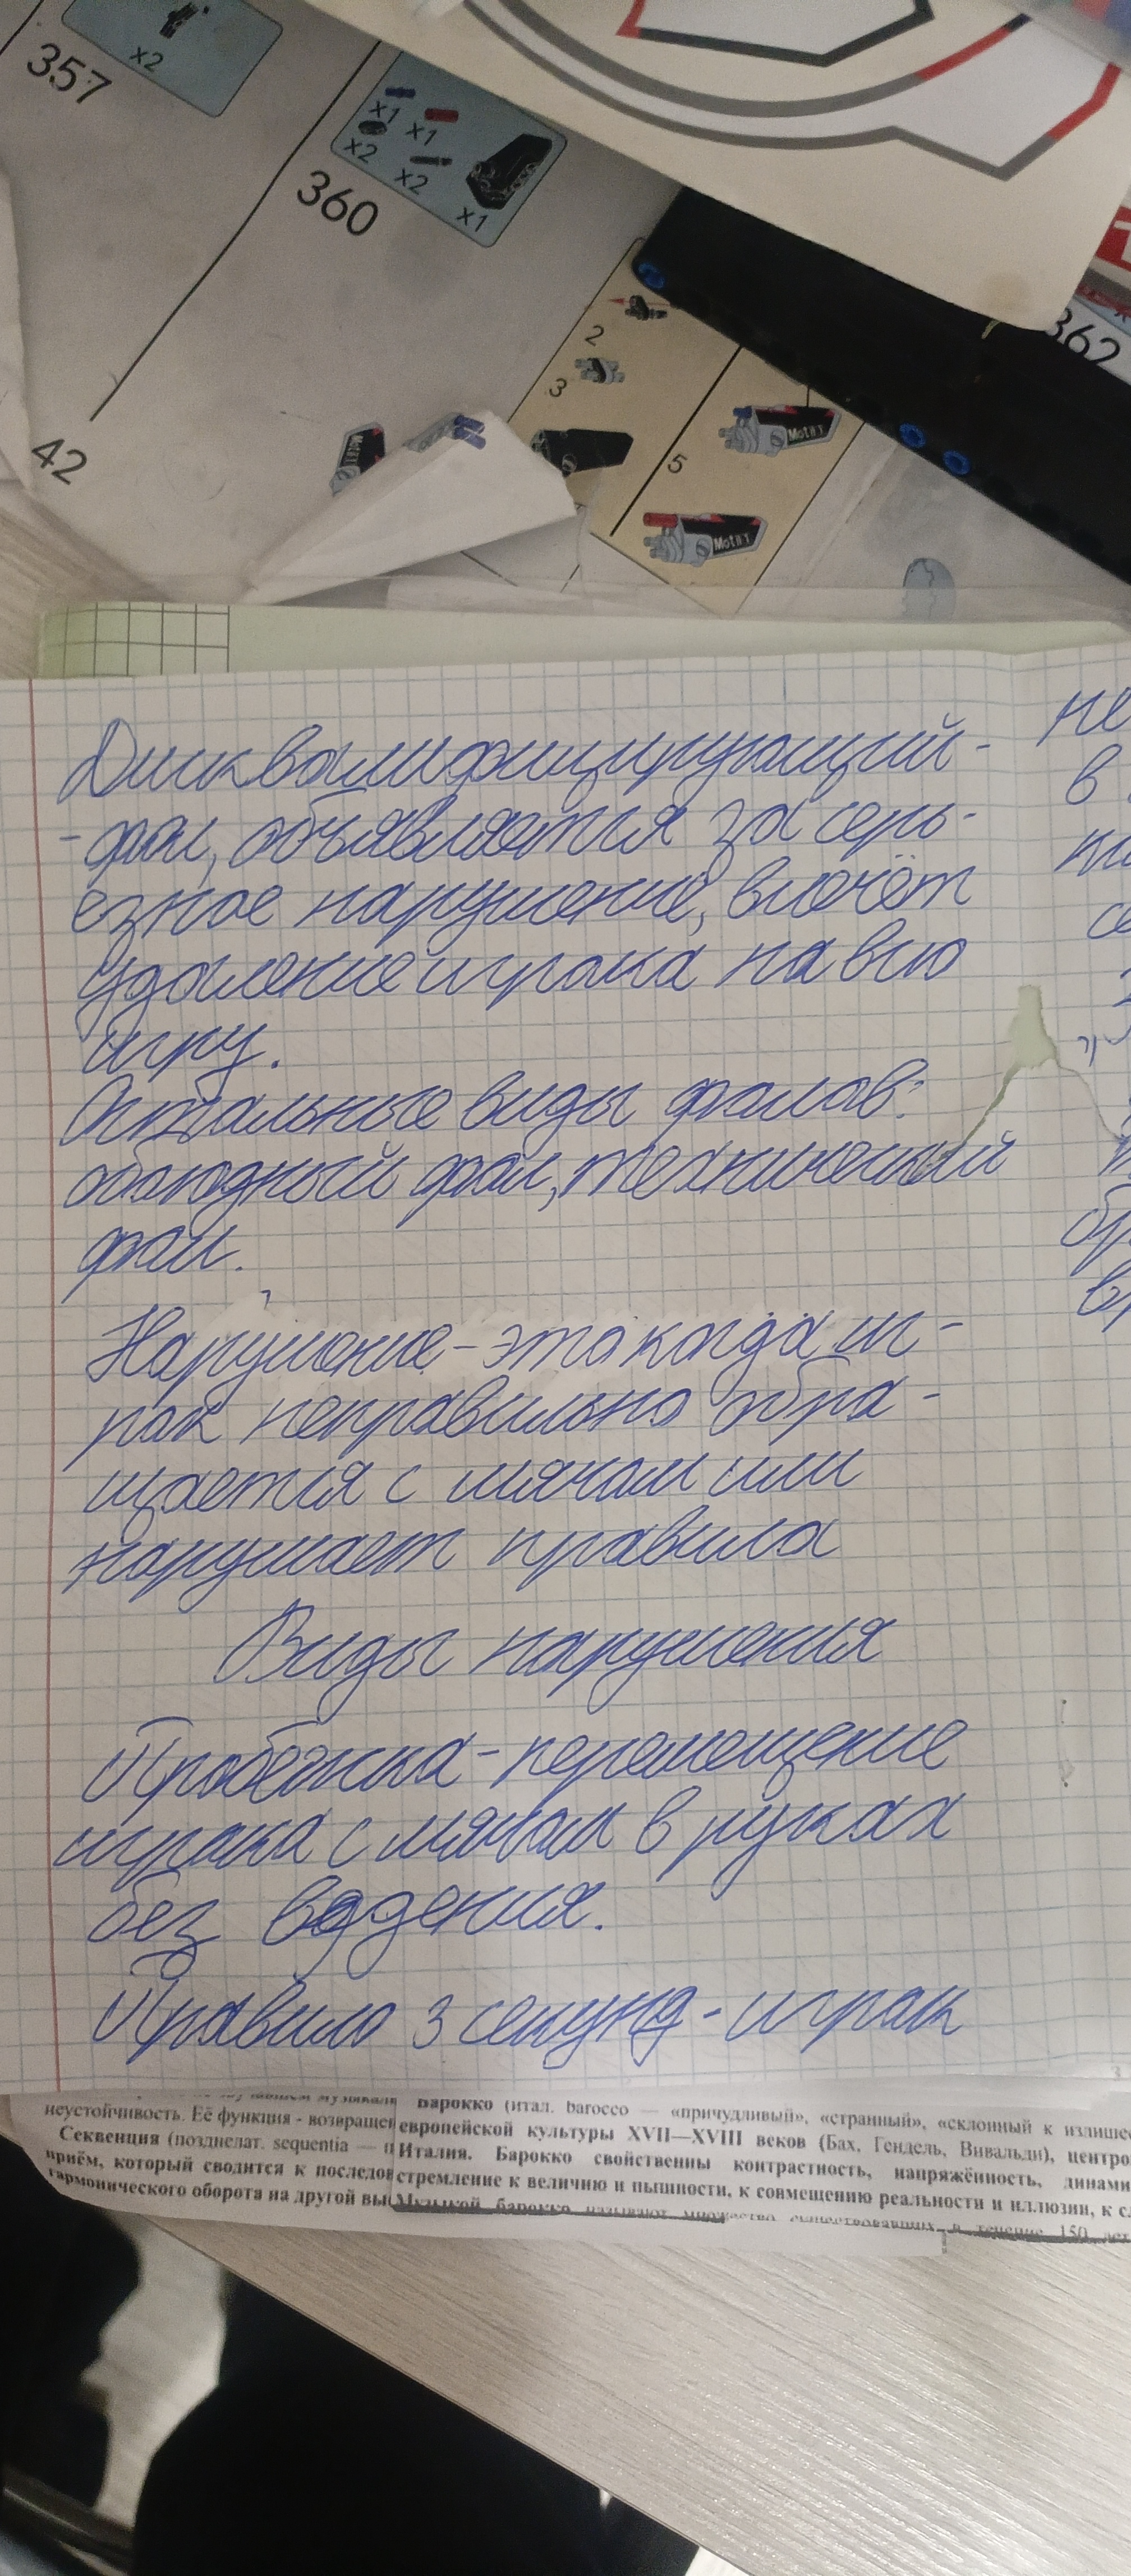 357
x2
x1
x1
x2
x2
x1
360
362
2
3
5
MotGT
MotGT
42
Дисквалифицирующий-
-фол, объявляется за серь-
езное нарушение, влечёт
удаление игрока на всю
игру.
Остальные виды фолов:
обоюдный фол, технический
фол.
Нарушение - это когда иг-
рок неправильно обра-
щается с мячом или
нарушает правила
Виды нарушения
Пробежка - перемещение
игрока с мячом в руках
без ведения.
Правило 3 секунд - игрок
не
в
се
вр
неустойчивость. Её функция - возвращен
Секвенция (позднелат. sequentia — п
приём, который сводится к последов
гармонического оборота на другой выс
Барокко (итал. barocco — «причудливый», «странный», «склонный к излишес
европейской культуры XVII—XVIII веков (Бах, Гендель, Вивальди), центро
Италия. Барокко свойственны контрастность, напряжённость, динами
стремление к величию и пышности, к совмещению реальности и иллюзии, к сл
Музыкой барокко называют множество существовавших в течение 150 лет